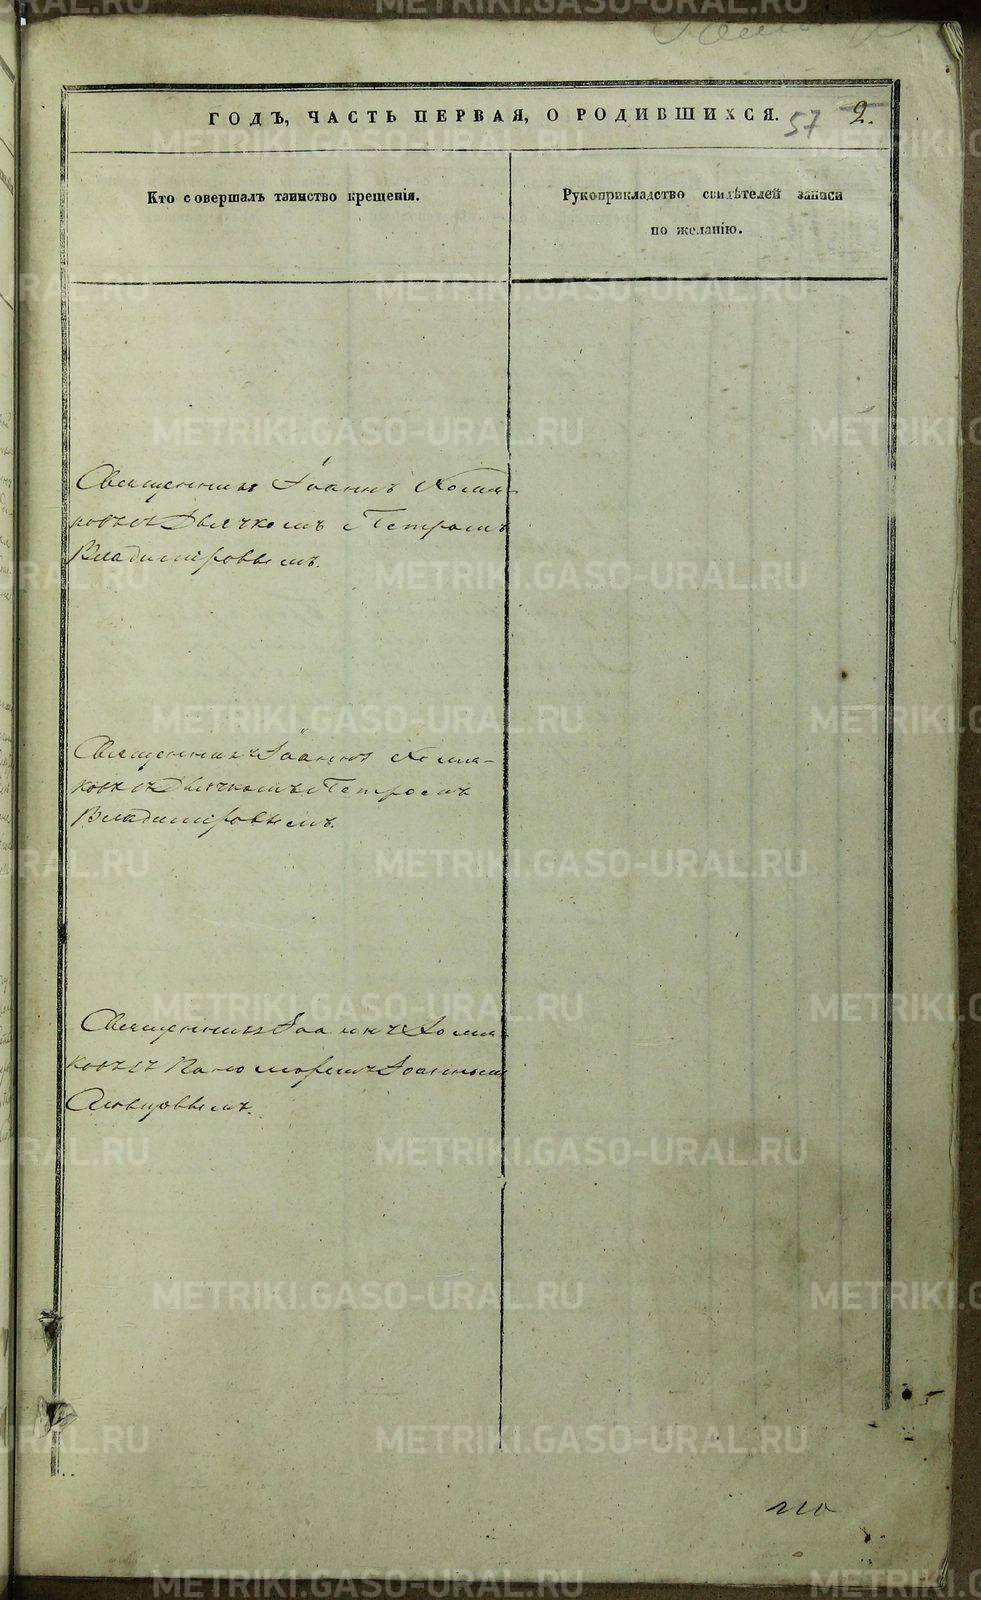 ГОДЪ, ЧАСТЬ ПЕРВАЯ, О РОДИВШИХСЯ.
57 2.
Кто совершалъ таинство крещенія.
Рукоприкладство свидѣтелей записи
по желанію.
Священникъ Іоаннъ Хомя-
ковъ съ Дьячкомъ Петромъ
Владиміровымъ.
Священникъ Іоаннъ Хомя-
ковъ съ Дьячкомъ Петромъ
Владиміровымъ.
Священникъ Іоаннъ Хомя-
ковъ съ Пономаремъ Іоанномъ
METRIKI.GASO-URAL.RU